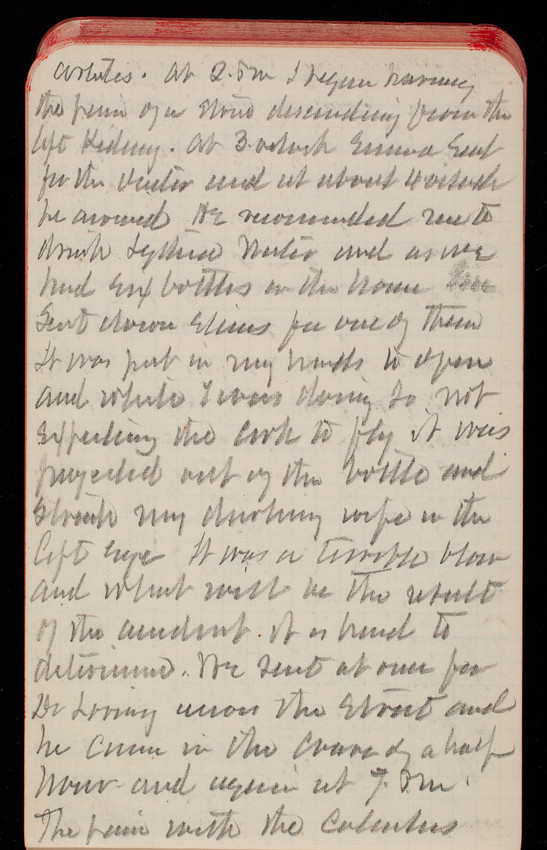 At 2. P m I began having
the pain of a Stone descending from the
left Kidney. At 3. oclock Emma Sent
for the Doctor and at about 4 oclock
he arrived He recommended me to
drink Lythia Water and as we
had Six bottles in the house
Sent down Stairs for one of them
It was put in my hands to open
and while I was doing so not
Expecting the Cork to fly it was
projected out of the bottle and
Struck my darling wife in the
left Eye It was a terrible blow
and what will be the result
of the accident. it is hard to
determine. We Sent at once for
Dr Loring across the Street and
he Came in the Course of a half
hour and again at 7. P m.
The pain with the Calculus